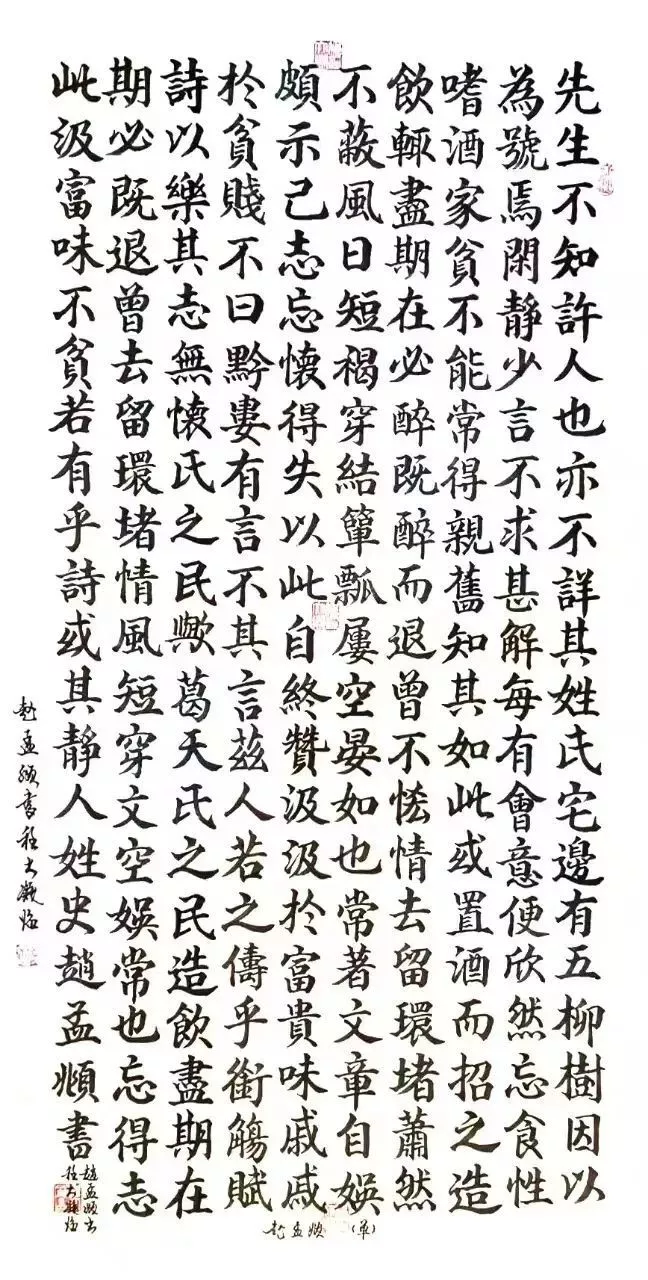 先生不知許人也亦不詳其姓氏宅邊有五柳樹因以
為號焉閑靜少言不求甚解每有會意便欣然忘食性
嗜酒家貧不能常得親舊知其如此或置酒而招之造
飲輒盡期在必醉既醉而退曾不恡情去留環堵蕭然
不蔽風日短褐穿結簞瓢屢空晏如也常著文章自娛
頗示己志忘懷得失以此自終贊汲汲於富貴味戚戚
於貧賤不曰黔婁有言不其言茲人若之儔乎銜觴賦
詩以樂其志無懷氏之民歟葛天氏之民造飲盡期在
期必既退曾去留環堵情風短穿文空娛常也忘得志
此汲富味不貧若有乎詩或其靜人姓史趙孟頫書
趙孟頫書
程大臨
趙孟頫書程大臨
趙孟頫